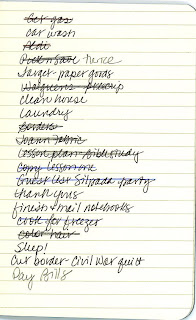 Get gas
car wash
Aldi
Pick n Save twice
Target paper goods
Walgreens prescrip
clean house
Laundry
Borders
Joann Fabric
Lesson plan Bible study
Copy lesson one
Guest list Silpada party
thank yous
finish + mail notebooks
cook for freezer
color hair
Sleep!
Cut border Civil War quilt
Pay Bills